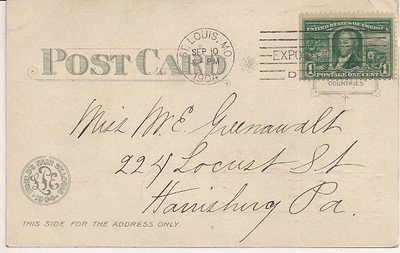 POST CARD
ST. LOUIS, MO.
SEP 10
1904
EXPO
UNITED STATES OF AMERICA
1 POSTAGE ONE CENT 1
COUNTRIES
Miss M. E. Greenawalt
224 Locust St
Harrisburg Pa.
WORLD'S FAIR ST. LOUIS
1904
THIS SIDE FOR THE ADDRESS ONLY.